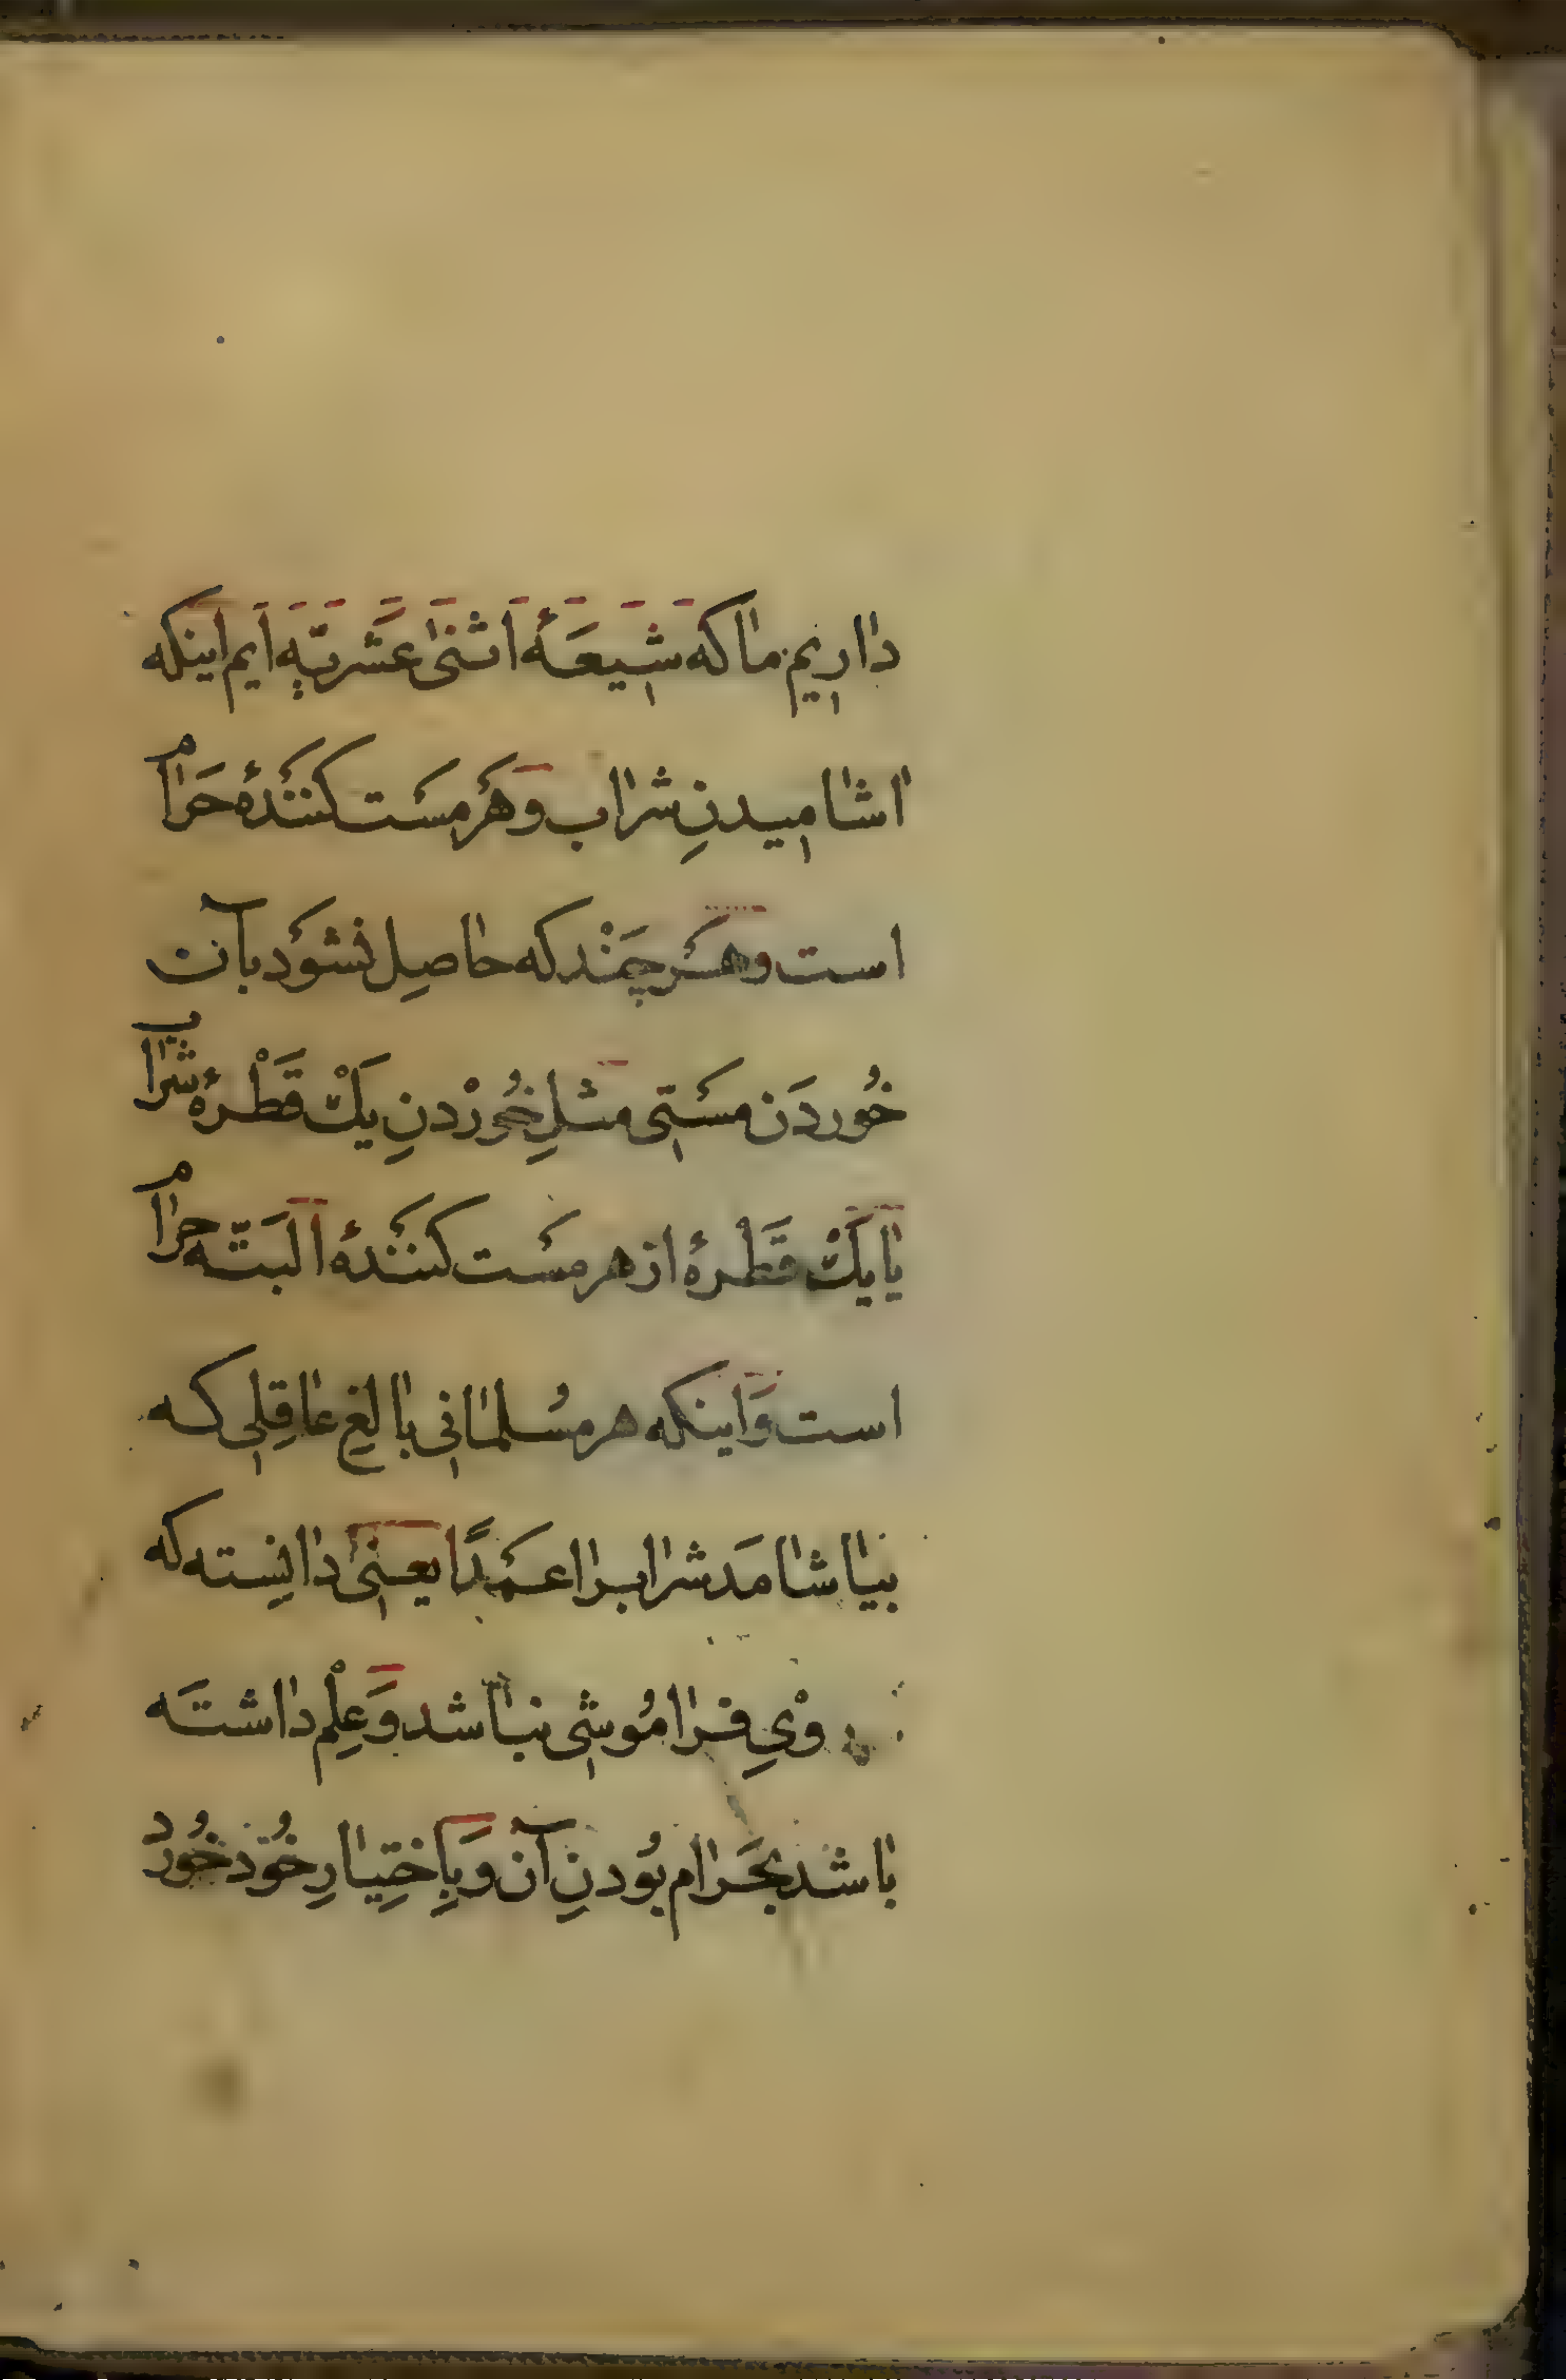 داریم ما که شِیعَهٔ اثنیٰ عَشَریّه ایم اینکه
اشامیدنِ شراب وَ هَر مَست کنَندهٔ حَرام
است و هَر چَنْد که حاصِل نشوَد بآن
خُوردَن مَستی مثلِ خُورْدنِ یَكْ قَطْرهٔ شراب
یا یَكْ قَطْرهٔ از هر مَست کنَندهٔ البَتّه حرام
است وَ اینکه هر مسُلمانی بالغِ عاقِلی که
بیاشامَد شرابرا عَمَدًا یعنیٰ دانِسته که
وْیِ فرامُوشی نباشد وَ عِلْم داشتَه
باشد بحَرام بُودنِ آن وَ بِاِختِیارِ خُود خُورد